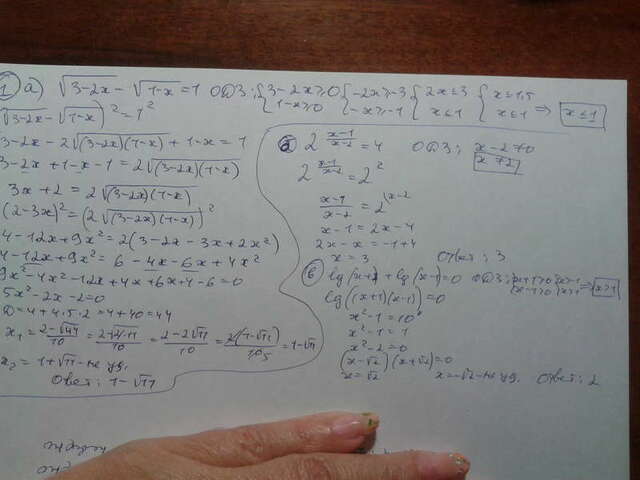 1 а) √3-2x - √1-x = 1 ОДЗ: { 3-2x≥0 { -2x≥-3 { 2x≤3 { x≤1,5
1-x≥0 -x≥-1 x≤1 x≤1 ⇒ x≤1
√3-2x - √1-x)² = 1²
3-2x - 2√(3-2x)(1-x) + 1-x = 1
3-2x+1-x-1 = 2√(3-2x)(1-x)
3x+2 = 2√(3-2x)(1-x)
(2-3x)² = (2√(3-2x)(1-x))²
4-12x+9x² = 2(3-2x-3x+2x²)
4-12x+9x² = 6-4x-6x+4x²
9x²-4x²-12x+4x+6x+4-6=0
5x²-2x-2=0
D=4+4·5·2=4+40=44
x₁ = 2-√44/10 = = 2-2√11/10 = = 1-√11
x₂ = 1+√11 - не уд.
Ответ: 1-√11
б 2^(x-1/x-2) = 4 ОДЗ: x-2≠0
x≠2
2^(x-1/x-2) = 2²
x-1/x-2 = 2
x-1 = 2x-4
2x-x = -1+4
x = 3 Ответ: 3
в lg(x+1)+lg(x-1)=0 ОДЗ: { x+1>0 { x>-1
x-1>0 x>1 ⇒ x>1
lg((x+1)(x-1))=0
x²-1=10⁰
x²-1=1
x²-2=0
(x-√2)(x+√2)=0
x=√2 x=-√2 - не уд. Ответ: 2